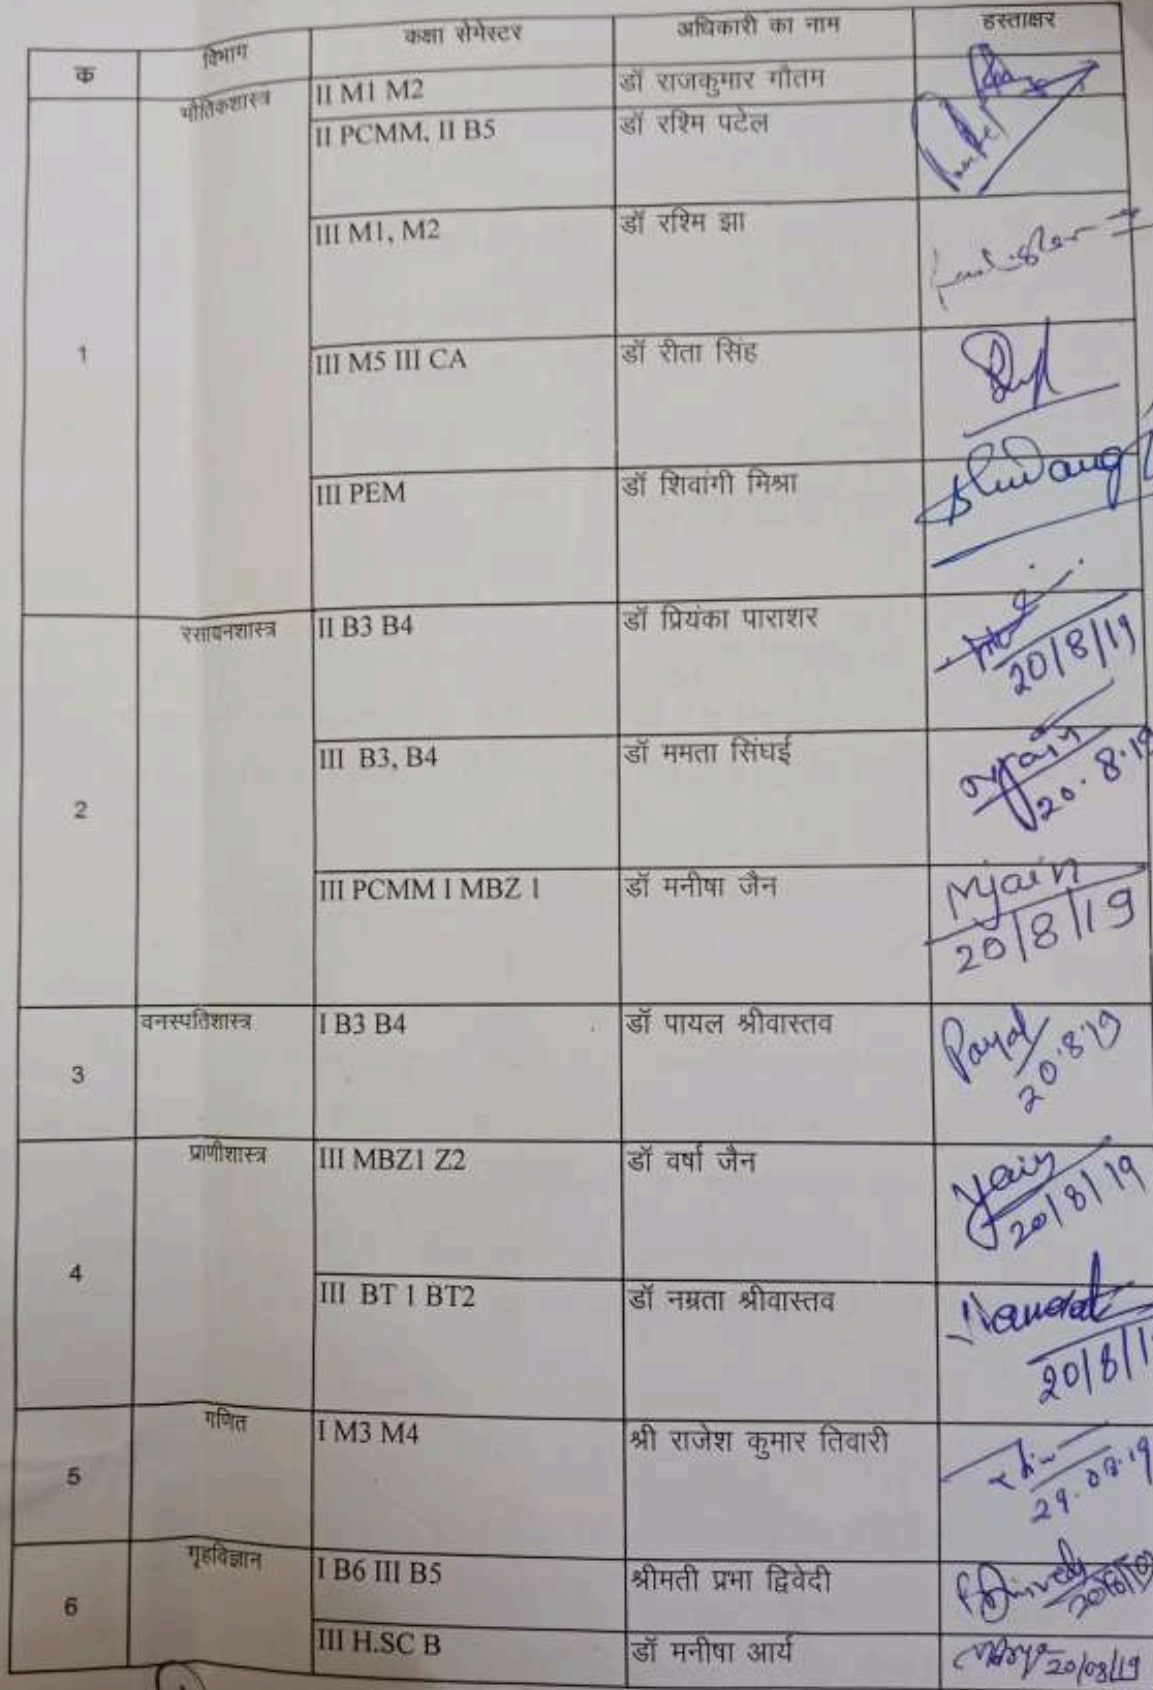 क विभाग कक्षा सेमेस्टर अधिकारी का नाम हस्ताक्षर
1 भौतिकशास्त्र II M1 M2 डॉ राजकुमार गौतम
II PCMM, II B5 डॉ रश्मि पटेल
III M1, M2 डॉ रश्मि झा
III M5 III CA डॉ रीता सिंह
III PEM डॉ शिवांगी मिश्रा
2 रसायनशास्त्र II B3 B4 डॉ प्रियंका पाराशर
20/8/19
III B3, B4 डॉ ममता सिंघई
20.8.19
III PCMM I MBZ 1 डॉ मनीषा जैन Mjain
20/8/19
3 वनस्पतिशास्त्र I B3 B4 डॉ पायल श्रीवास्तव Payal
20.8.19
4 प्राणीशास्त्र III MBZ1 Z2 डॉ वर्षा जैन
20/8/19
III BT 1 BT2 डॉ नम्रता श्रीवास्तव
5 गणित I M3 M4 श्री राजेश कुमार तिवारी
6 गृहविज्ञान I B6 III B5 श्रीमती प्रभा द्विवेदी
III H.SC B डॉ मनीषा आर्य 20/08/19